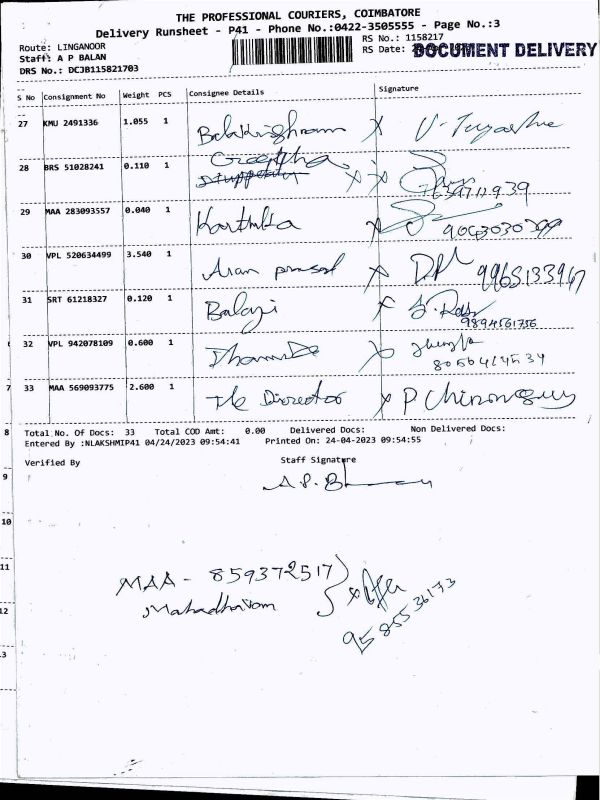 THE PROFESSIONAL COURIERS, COIMBATORE
Delivery Runsheet - P41 - Phone No.:0422-3505555 - Page No.:3
Route: LINGANOOR
RS No.: 1158217
Staff: A P BALAN
RS Date:
DOCUMENT DELIVERY
DRS No.: DCJB115821703
S No Consignment No Weight PCS Consignee Details Signature
27 KMU 2491336 1.055 1 Balakrishnan X
28 BRS 51028241 0.110 1 X X
29 MAA 283093557 0.040 1 Karthika X
30 VPL 520634499 3.540 1 Arun prasad X 9965133967
31 SRT 61218327 0.120 1 Balaji X 9894561756
32 VPL 942078109 0.600 1 X
33 MAA 569093775 2.600 1 The Director X
7
8
Total No. Of Docs: 33 Total COD Amt: 0.00 Delivered Docs: Non Delivered Docs:
Entered By :NLAKSHMIP41 04/24/2023 09:54:41 Printed On: 24-04-2023 09:54:55
Verified By Staff Signature
9
A.P. B
10
11
MAA - 859372517
12
95855 36173